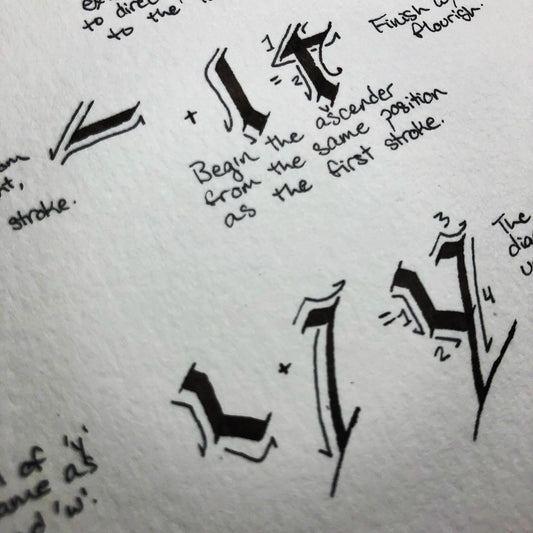 to direc
to the
Finish w
flourish.
1
2
+ =
Begin the ascender
from the same position
as the first stroke.
stroke.
The
3
+ = 1
4
2
of 'y'
ame as
d 'w'.